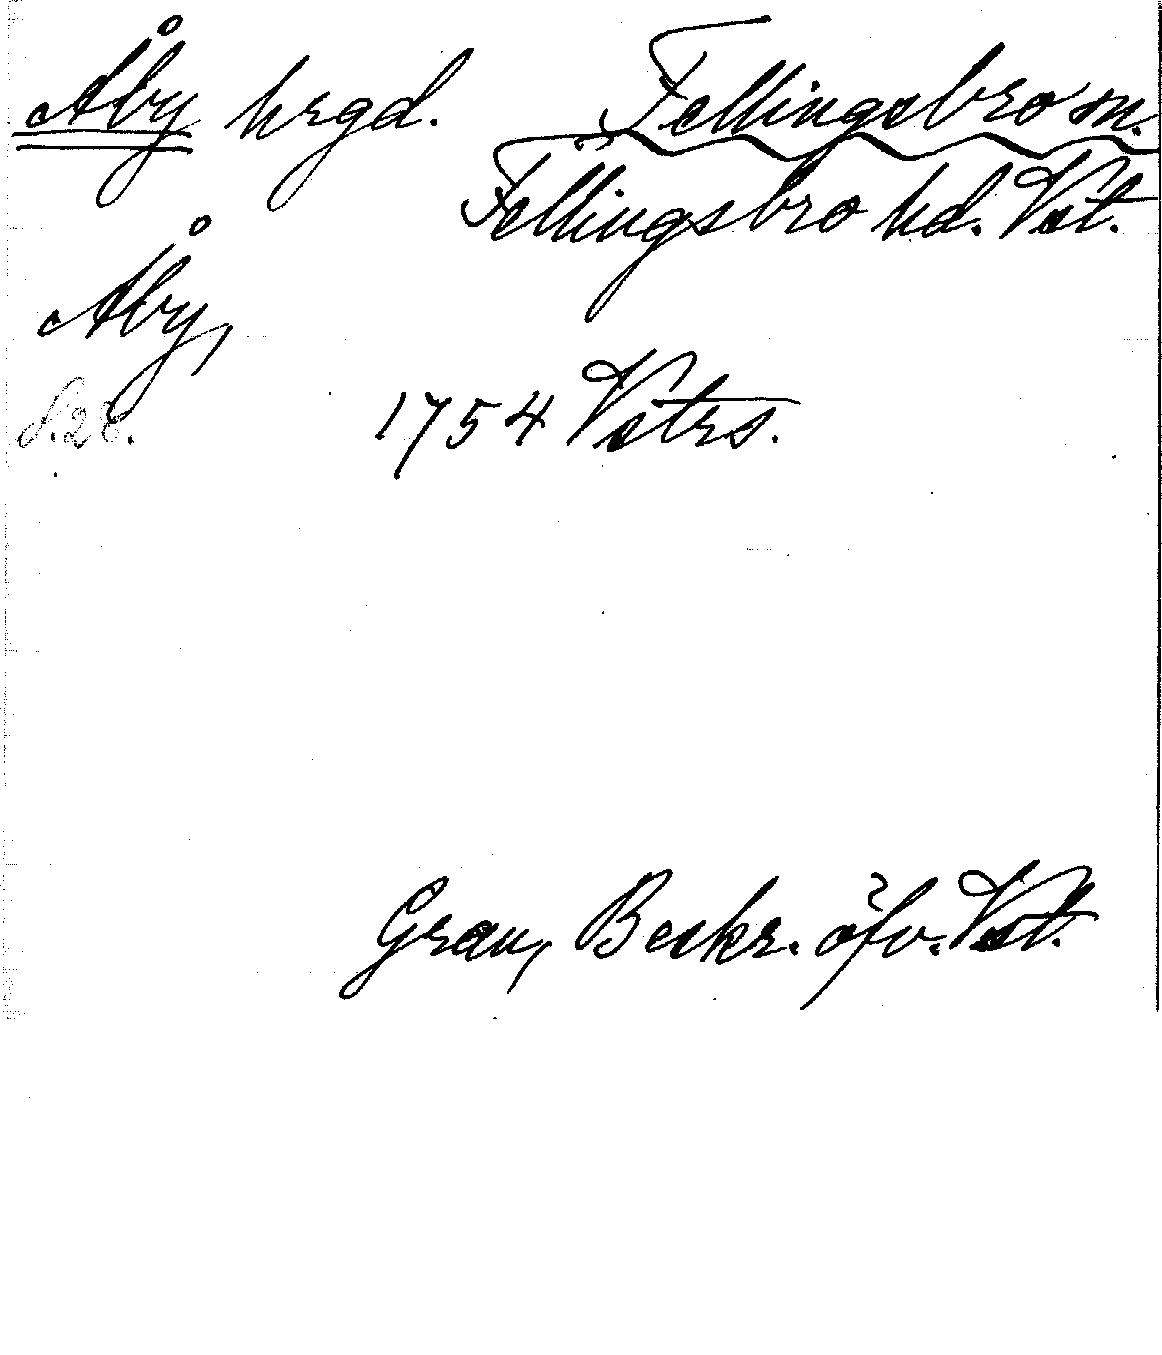 Åby hrgd. Fellingsbro sn.
Fellingsbro hd. Vst.
Åby,
S.28. 1754 Vstrs.
Grau, Beskr. öfv. Vst.